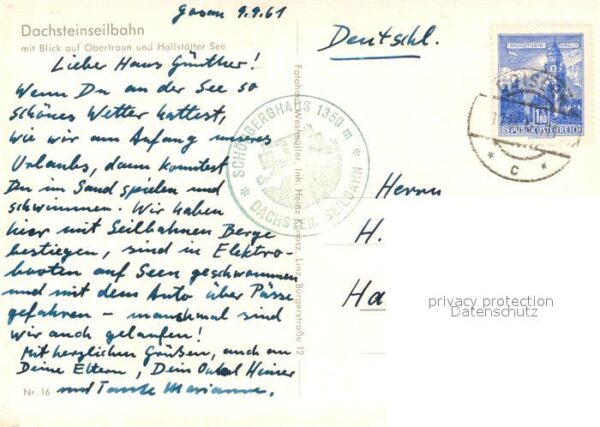 Gosau 9.9.61
Dachsteinseilbahn
mit Blick auf Obertraun und Hallstätter See
Lieber Hans Günther!
Wenn Du an der See so
schönes Wetter hattest,
wie wir am Anfang unseres
Urlaubs, dann konntest
Du im Sand spielen und
schwimmen. Wir haben
hier mit Seilbahnen Berge
bestiegen, sind in Elektro-
booten auf Seen geschwommen
und mit dem Auto über Pässe
gefahren – manchmal sind
wir auch gelaufen!
Mit herzlichen Grüßen, auch an
Deine Eltern, Dein Onkel Heiner
und Tante Marianne.
Nr. 16
SCHÖNBERGHAUS 1350 m
DACHSTEIN SEILBAHN
Fotohaus Westmüller, Inh. Heinz Linz, Bürgerstraße 12
Deutschl.
1.80
REPUBLIK ÖSTERREICH
C
Herrn
H.
Ha
privacy protection
Datenschutz